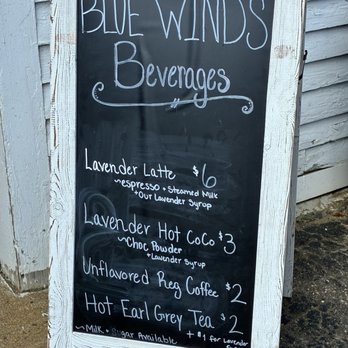 BLUE WINDS
Beverages
Lavender Latte $6
~espresso + Steamed Milk
+ Our Lavender Syrup
Lavender Hot CoCo $3
~Choc Powder
+ Lavender Syrup
Unflavored Reg Coffee $2
Hot Earl Grey Tea $2
~Milk + Sugar Available + $1 for Lavender